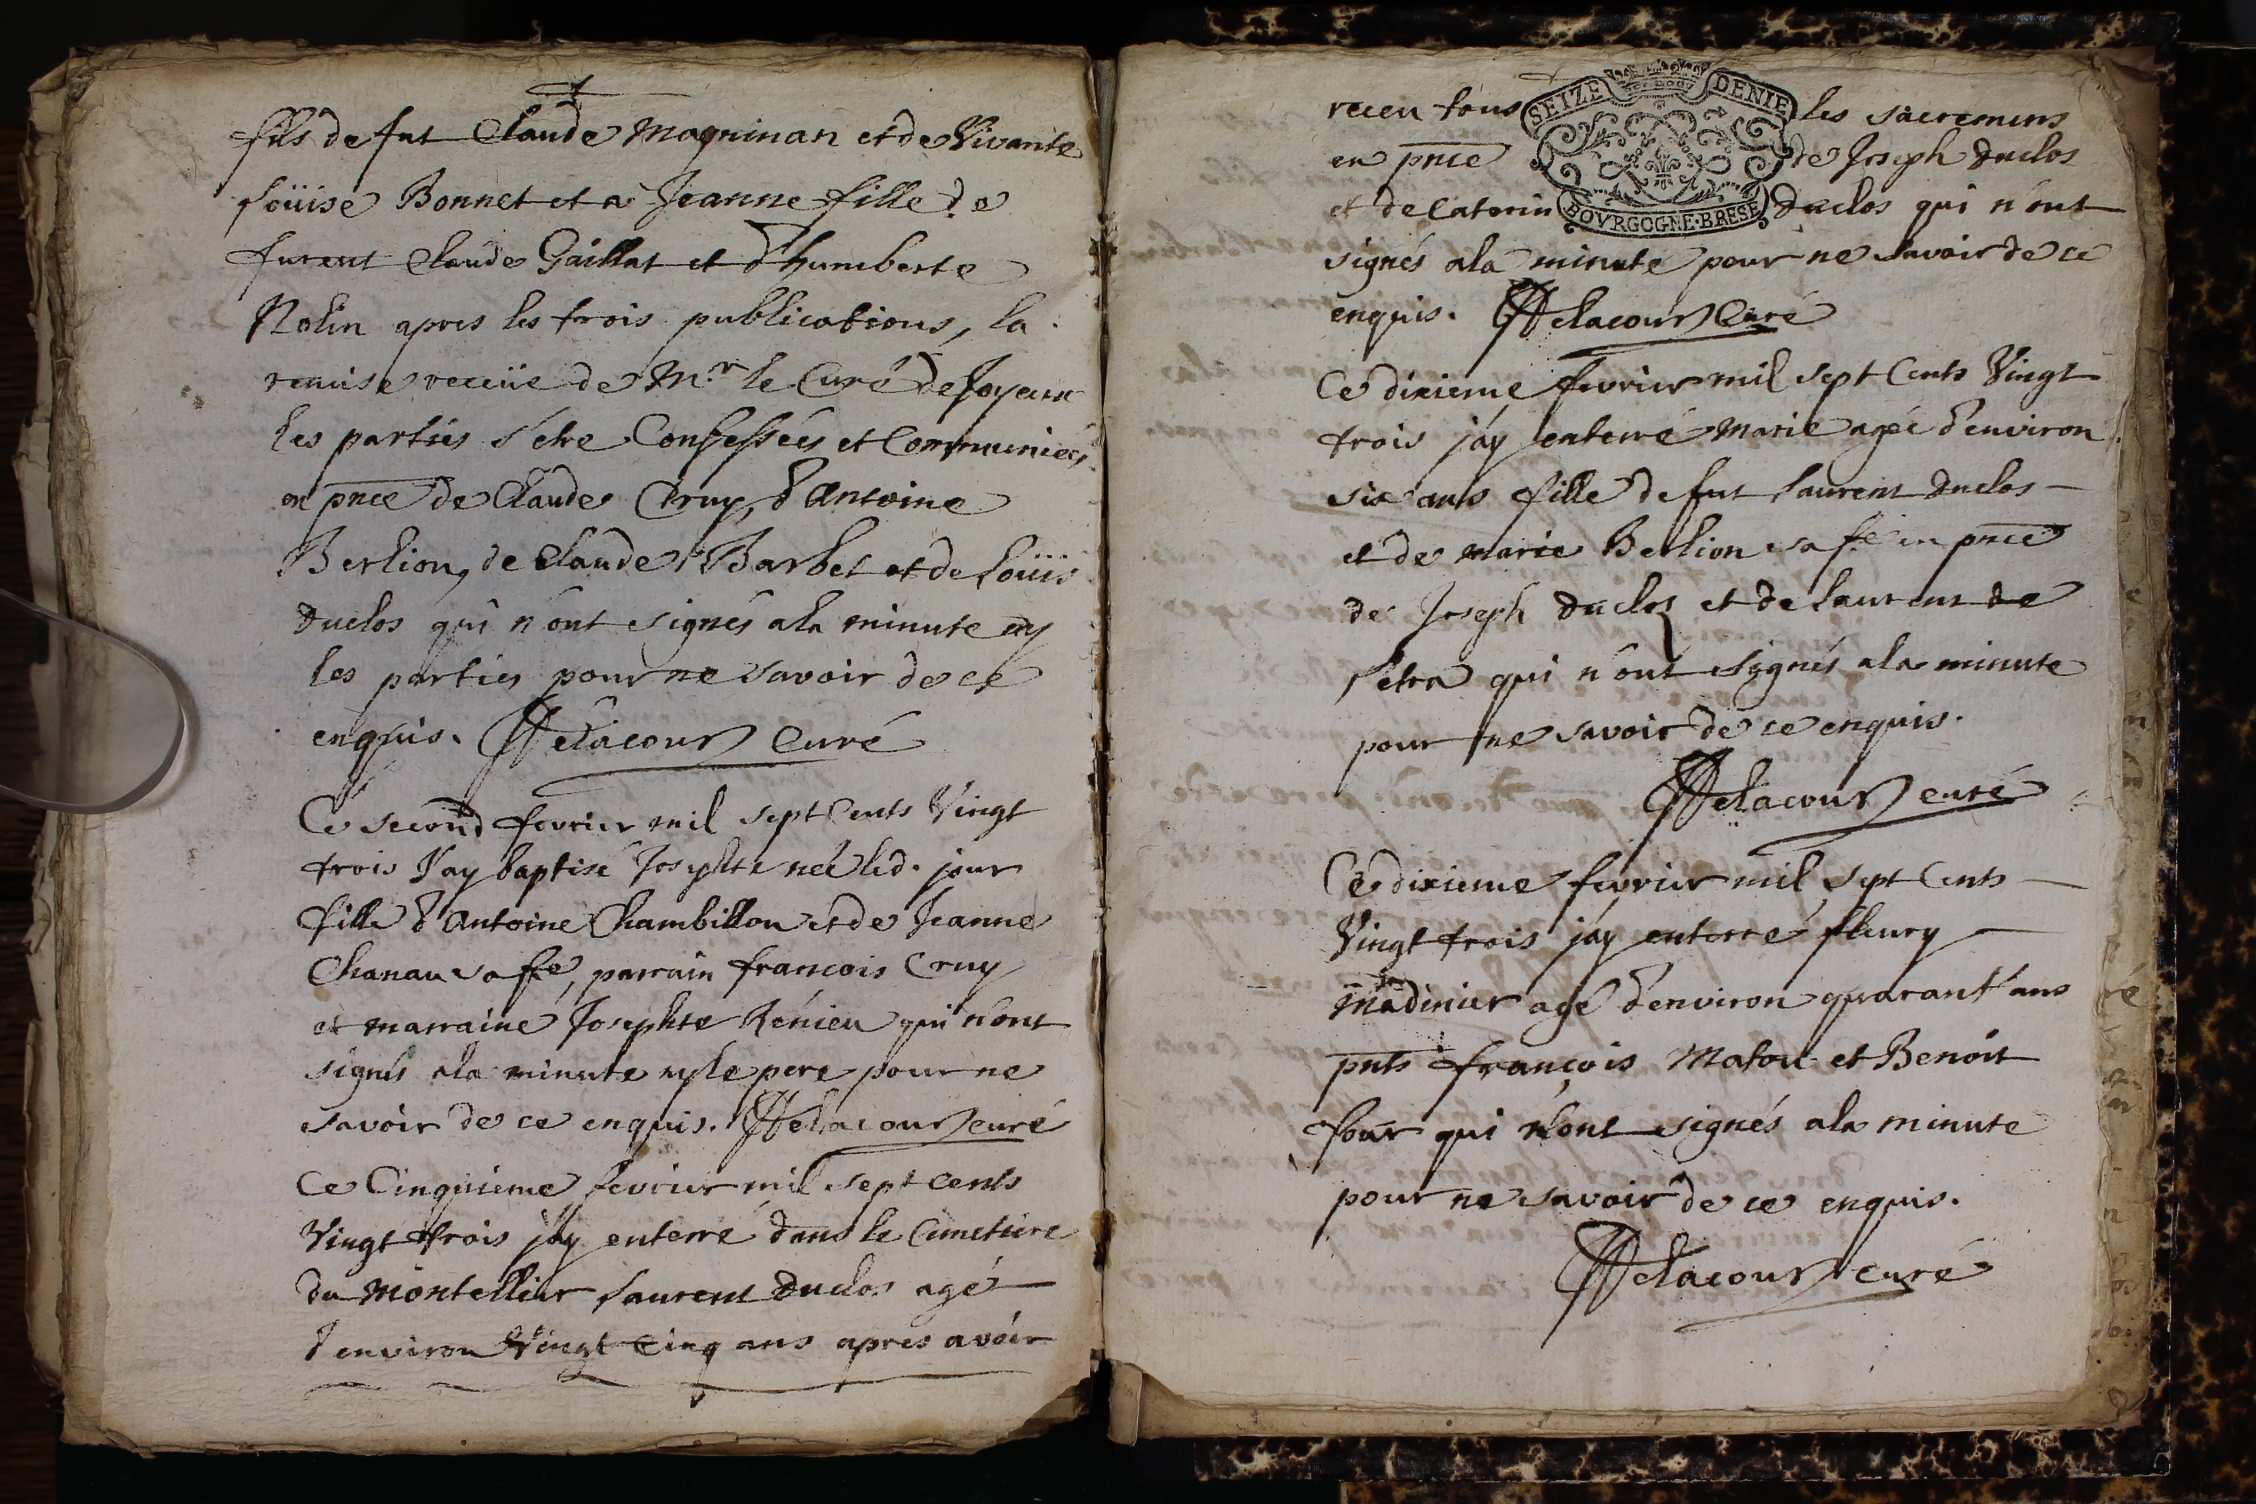 fils de fut Claude Magninan et de Vivante
Loüise Bonnet et a Jeanne fille de
furent Claude Gaillat et d'humberte
Nolin apres les trois publications, la
remise receüe de Mr. le Curé de Joyeux
les parties s'etre Confessées et Communiées
en pnce de Claude Cruy, d'Antoine
Berlion, de Claude Barbet et de Loüis
Duclos qui n'ont signés a la minute ny
les parties pour ne savoir de ce
enquis. Delacour Curé
Ce second fevrier mil sept Cents Vingt
trois J'ay baptisé Josephte neé led. jour
fille d'Antoine Chambillon et de Jeanne
Chanau sa fe, parrain françois Cruy
et marraine Josephte Renieu qui n'ont
signés a la minute ny le pere pour ne
savoir de ce enquis. Delacour curé
Ce Cinquieme fevrier mil sept cents
Vingt trois j'ay enterré dans le Cimetiere
du Montellier Laurent Duclos agé
d'environ Vingt Cinq ans apres avoir
receu tous les sacremens
en pnce de Joseph Duclos
et de Caterin Duclos qui n'ont
SEIZE DENIE
BOVRGOGNE·BRESE
signés a la minute pour ne savoir de ce
enquis. Delacour Curé
Ce dixieme fevrier mil sept Cents Vingt
trois j'ay enterré Marie agée d'environ
six ans fille de fut Laurent Duclos
et de marie Berlion sa fe en pnce
de Joseph Duclos et de Laurent de
Letra qui n'ont signés a la minute
pour ne savoir de ce enquis.
Delacour curé
Ce dixieme fevrier mil sept Cents
Vingt trois j'ay enterré fleury
madinier agé d'environ quarant'ans
pnts françois Matou et Benoit
four qui n'ont signés a la minute
pour ne savoir de ce enquis.
Delacour curé